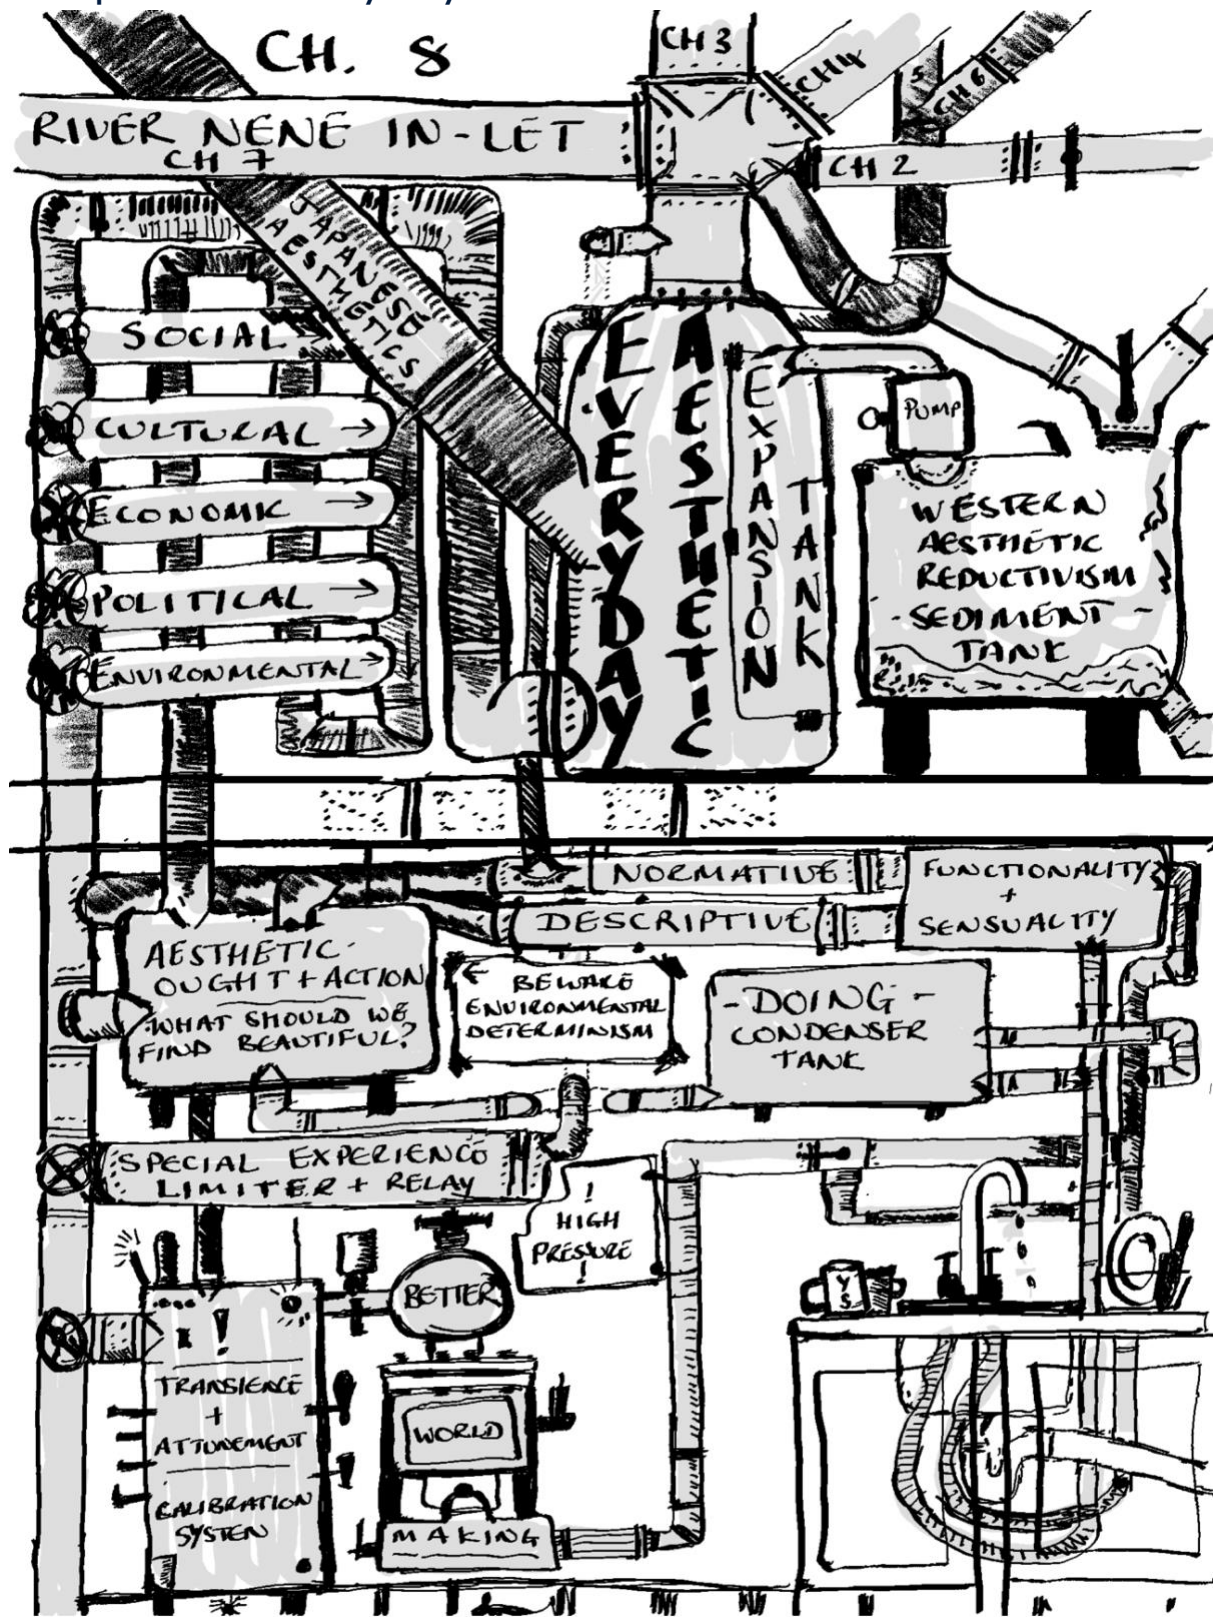 CH. 8
CH 3
CH 4
5
CH 6
RIVER NENE IN-LET
CH 7
CH 2
JAPANESE
AESTHETICS
SOCIAL →
CULTURAL →
ECONOMIC →
POLITICAL →
ENVIRONMENTAL →
EVERYDAY
AESTHETIC
EXPANSION
TANK
PUMP
WESTERN
AESTHETIC
REDUCTIVISM
-SEDIMENT-
TANK
NORMATIVE
DESCRIPTIVE
FUNCTIONALITY
+
SENSUALITY
AESTHETIC-
OUGHT + ACTION
-WHAT SHOULD WE
FIND BEAUTIFUL?
← BEWARE
ENVIRONMENTAL
DETERMINISM
-DOING-
CONDENSER
TANK
SPECIAL EXPERIENCE
LIMITER + RELAY
!
HIGH
PRESSURE
!
BETTER
WORLD
MAKING
!
TRANSIENCE
+
ATTUNEMENT
CALIBRATION
SYSTEM
Y
S